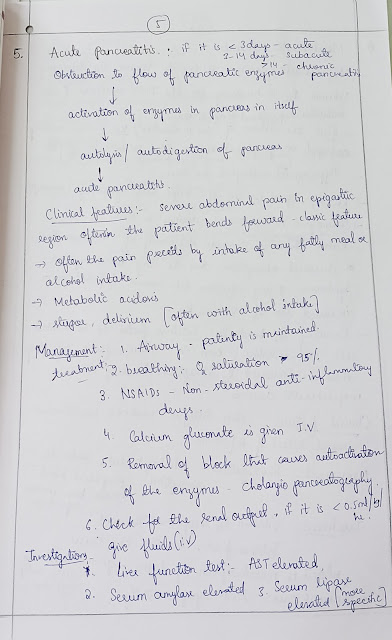 5
5. Acute Pancreatitis. if it is < 3days - acute
2-14 days - subacute
>14 - chronic
Obstruction to flow of pancreatic enzymes pancreatitis
↓
activation of enzymes in pancreas in itself
↓
autolysis/ autodigestion of pancreas
↓
acute pancreatitis.
Clinical features:- severe abdominal pain in epigastric
region often the patient bends forward - classic feature
→ Often the pain by intake of any fatty meal or
alcohol intake.
→ Metabolic acidosis
→ stupor, delirium [often with alcohol intake]
Management:- 1. Airway - patency is maintained.
treatment:- 2. breathing:- O2 saturation > 95%
3. NSAIDs - Non-steroidal anti-inflammatory
drugs.
4. Calcium gluconate is given I.V
5. Removal of block that causes autoactivation
of the enzymes - cholangio pancreatography.
6. Check for the renal output, if it is < 0.5ml/kg/
hr.
give fluids (i.v)
Investigation
1. Liver function test:- AST elevated,
2. Serum amylase elevated 3. Serum lipase
elevated [more
specific]